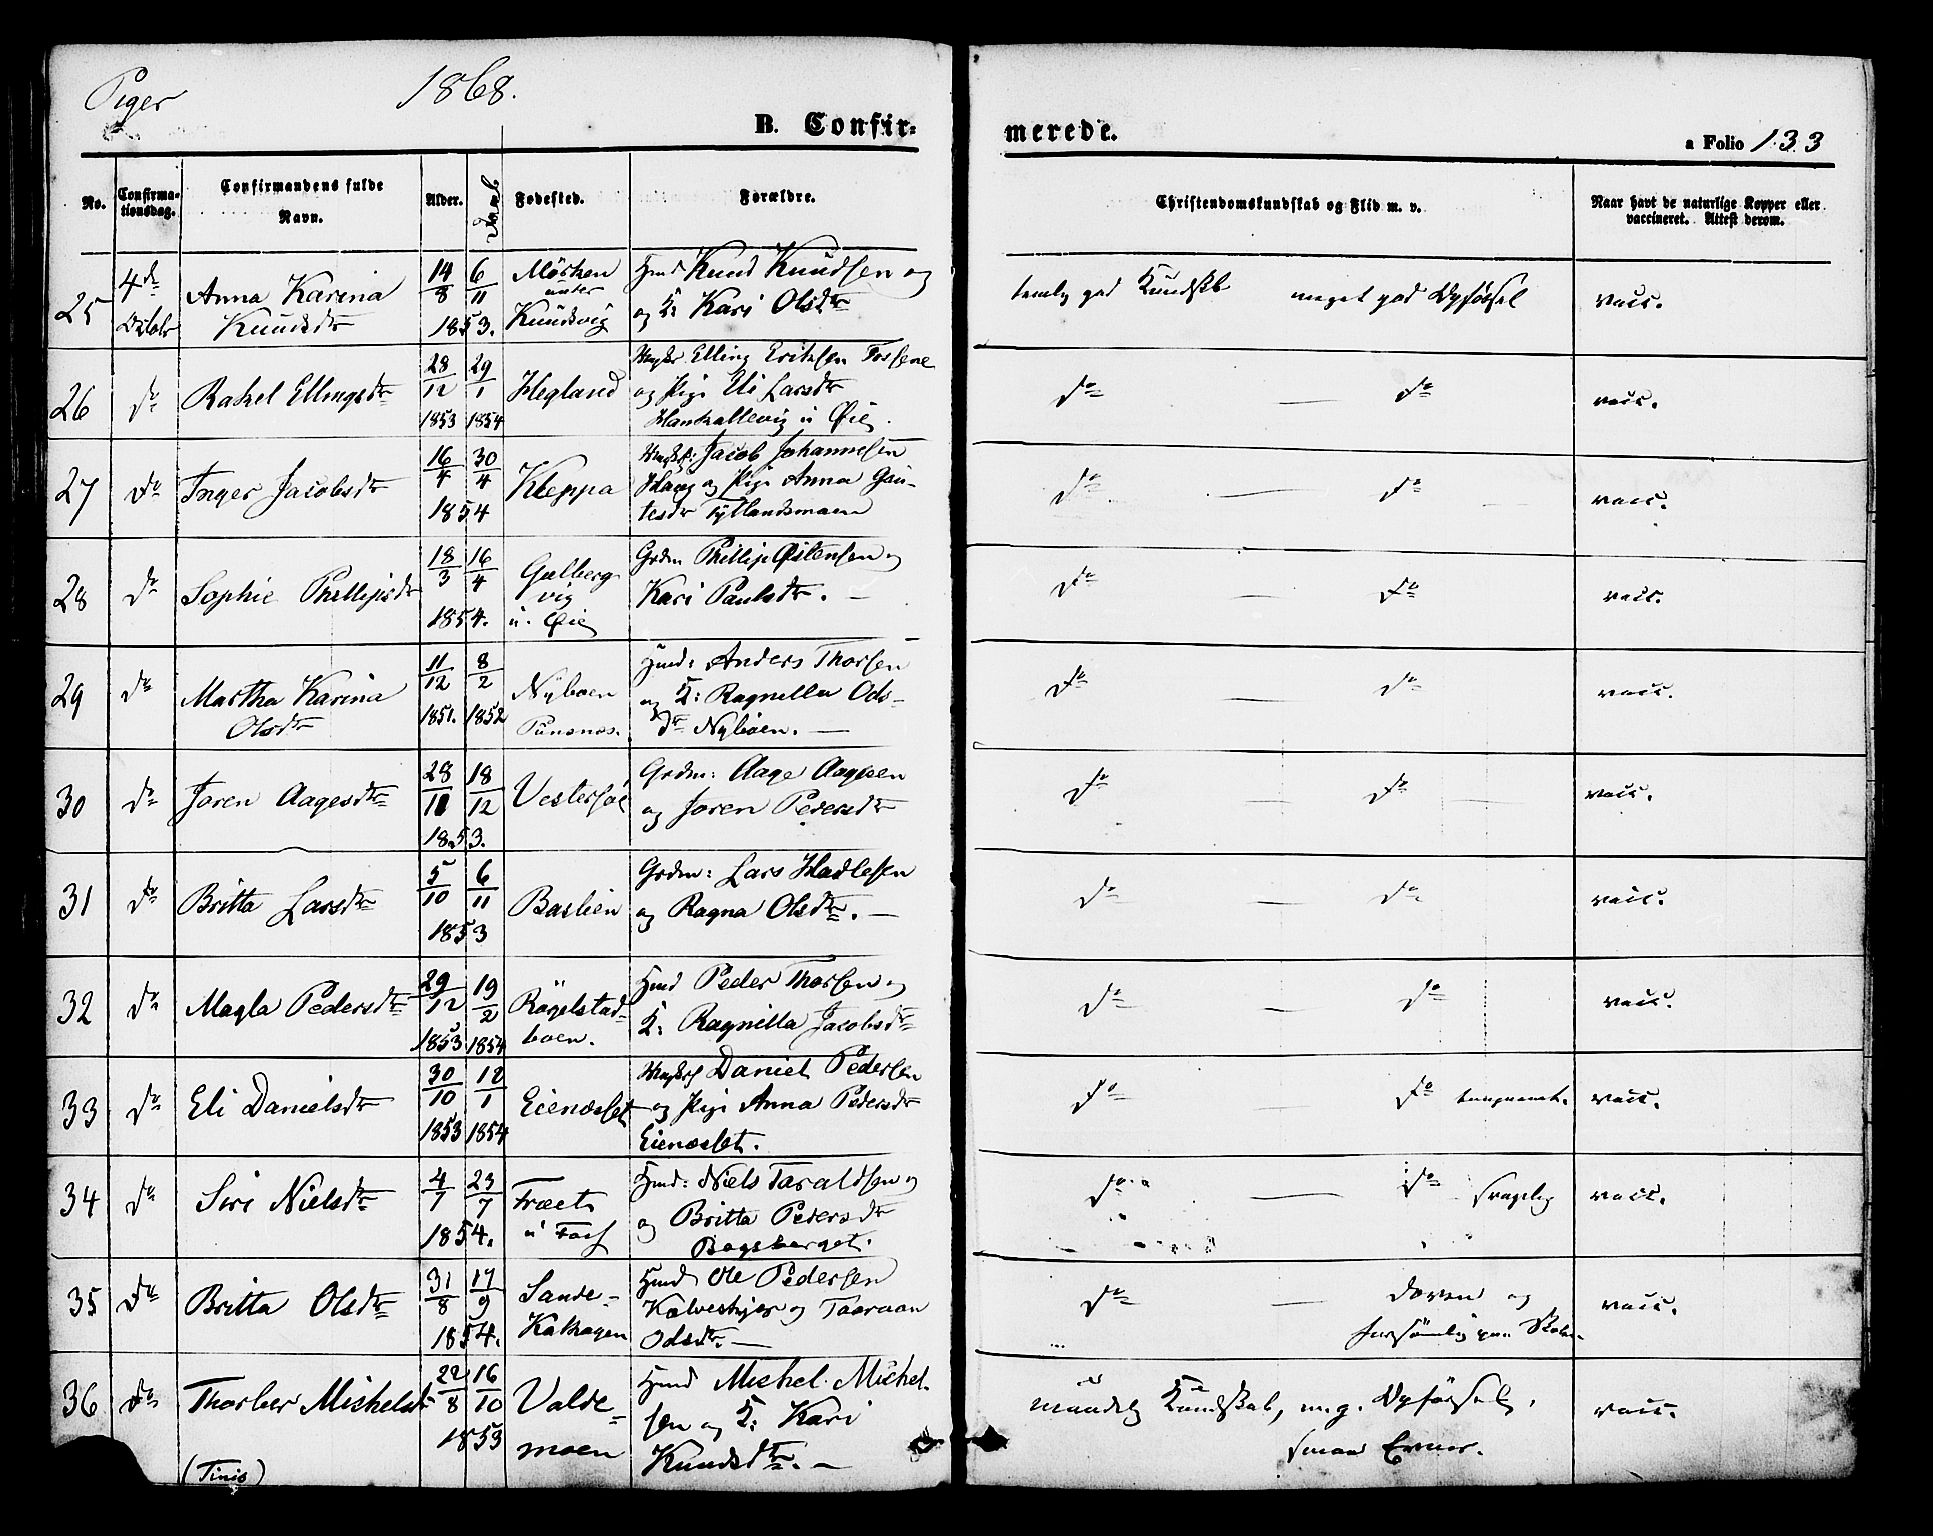 Piger 1868.
B. Confirmerede. a Folio 133
No. Confirmationsdag. Confirmandens fulde Navn. Alder. Daab Fødested. Forældre. Christendomskundskab og Flid m. v. Naar havt de naturlige Kopper eller vaccineret. Attest derom.
25 4de Octobr Anna Karina Knudsdtr 14/8 6/11 1853. under Knudsvig Hmd Knud Knudsen og
og K: Kari Olsdtr temlig god Kundskb meget god Opførsel vacc.
26 do Rakel Ellingsdtr 28/12 1853 29/1 1854 Hegland Elling Eriksen
og Pige Eli Larsdtr
u Øie. do — do vacc.
27 do Inger Jacobsdtr 16/4 30/4 1854 Kleppa Jacob Johannesen
Haug og Pige Anna Gau-
tesdtr Tytlandsmoen do do vacc.
28 do Sophie Phillipsdtr 18/3 16/4 1854. Gulberg
vig
u. Øie Grdm Phillip Østensen og
Kari Paulsdtr. — do — do vacc.
29 do Martha Karina
Olsdtr 11/12 1851. 8/2 1852 Nyboen
Hmd: Anders Thorsen
og K: Ragnilla Ods-
dtr Nyboen. — do — do vacc.
30 do Joren Aagesdtr 28/10 18/12 1853. Grdm: Aage Aagesen
og Joren Pedersdtr do — do — vacc.
31 do Britta Larsdtr 5/10 6/11 1853 Bastien Grdm: Lars Hadlesen
og Ragna Olsdtr. — do — do vacc.
32 do Magla Pedersdtr 29/12 1853 19/2 1854 Røgelstad-
boen. Hmd Peder Thorsen og
K: Ragnilla Jacobsdtr do — do vacc.
33 do Eli Danielsdtr 30/10 1853 12/1 1854 Eienæsset Daniel Pedersen
og Pige Anna Pedersdtr
Eienæsset. do — do vacc.
34 do Siri Nielsdtr 23/7 1854. Træet
u Foss Hmd: Niels Taraldsen og
og Britta Pedersdtr
Bogsberget. do — do svagelig vacc.
35 do Britta Olsdtr 31/8 17/9 1854. Sande-
Kalhagen Hmd Ole Pedersen
og Taaraan
Odsdtr. — do — doven og
forsømlig paa Skolen vacc.
36 do Thorber Michelsdtr
(Tinio) 22/8 16/10 1853 Valde-
moen Hmd Michel Michel-
sen og K: Kari
Knudsdtr. — maadelig Kundskab, m. g. Opførsel,
smaa Evner. vacc.